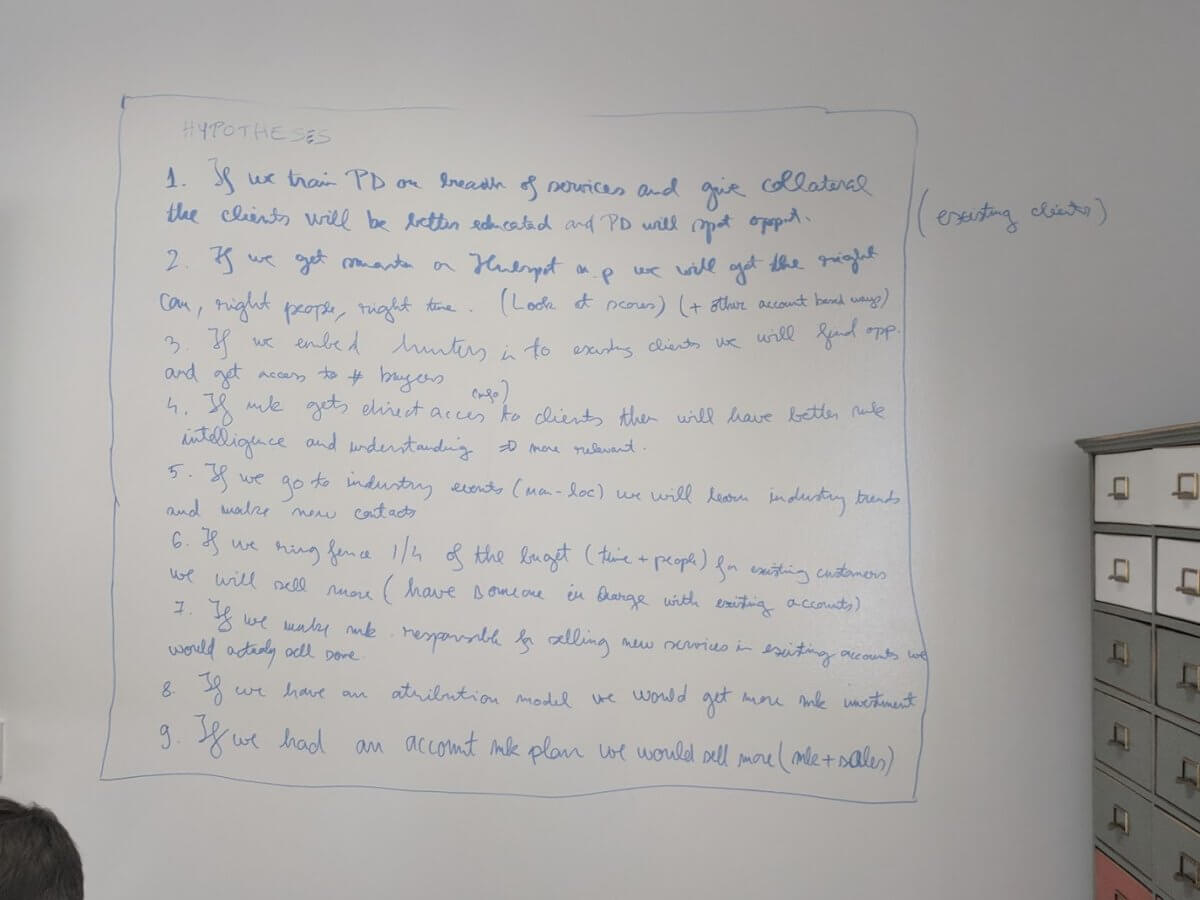 HYPOTHESES
1. If we train PD on breadth of services and give collateral
the clients will be better educated and PD will spot opport.
(existing clients)
2. If we get smarter on Hubspot we will get the right
right people, right time. (Look at scores) (+ other account based ways)
3. If we embed hunters in to existing clients we will find opp.
and get access to # buyers
4. If mk gets direct acces to clients then will have better mk
intelligence and understanding => more relevant.
5. If we go to industry events (non-loc) we will learn industry trends
and make new contacts
6. If we ring fence 1/4 of the buget (time + people) for existing customers
we will sell more (have someone in charge with existing accounts)
7. If we make mk. responsible for selling new services in existing accounts we
would actualy sell some.
8. If we have an atribution model we would get more mk investment
9. If we had an account mk plan we would sell more (mk + sales)